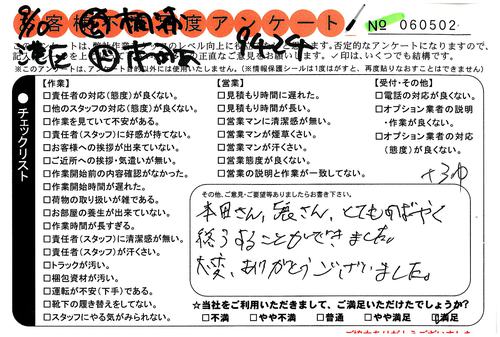 お客様満足度アンケート
№ 060502
このアンケートは、弊社作業、スタッフのレベル向上に役立
正直なご意見をお願いします。✓印は、いくつでも結構です。
※このアンケートは、アンケート目的以外には使用いたしません。(※情報保護シールは1度はがすと、再度貼りなおすことはできません)
●チェックリスト
【作業】
□責任者の対応(態度)が良くない。
□他のスタッフの対応(態度)が良くない。
□作業を見ていて不安がある。
□責任者(スタッフ)に好感が持てない。
□お客様への挨拶が出来ていない。
□ご近所への挨拶・気遣いが無い。
□作業開始前の内容確認がなかった。
□作業開始時間が遅れた。
□荷物の取り扱いが雑である。
□お部屋の養生が出来ていない。
□作業時間が長すぎる。
□責任者(スタッフ)に清潔感が無い。
□責任者(スタッフ)が汗くさい。
□トラックが汚い。
□梱包資材が汚い。
□運転が不安(下手)である。
□靴下の履き替えをしてない。
□スタッフにやる気がみられない。
【営業】
□見積もり時間に遅れた。
□見積もり時間が長い。
□営業マンに清潔感が無い。
□営業マンが煙草くさい。
□営業マンが汗くさい。
□営業態度が良くない。
□営業の説明と作業が一致してない。
【受付・その他】
□電話の対応が良くない。
□オプション業者の説明
・作業が良くない。
□オプション業者の対応
(態度)が良くない。
その他、ご意見・ご要望等ありましたらお書き下さい。
本田さん、 さん、とてもすばやく
終了することができました。
大変、ありがとうございました。
☆当社をご利用いただきまして、ご満足いただけたでしょうか?
□不満 □やや不満 □普通 □やや満足 □満足